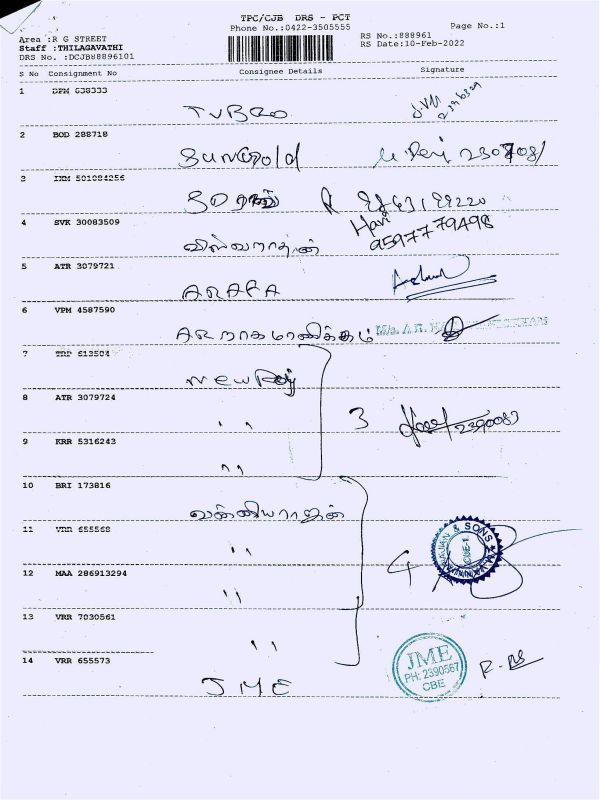 TPC/CJB DRS - PCT
Phone No.:0422-3505555
Page No.:1
Area :R G STREET
RS No.:888961
Staff :THILAGAVATHI
RS Date:10-Feb-2022
DRS No. :DCJB88896101
S No Consignment No Consignee Details Signature
1 DPM 638333
TVBRO
2 BOD 288718
SunGold
3 IXM 501084256
4 SVK 30083509
விஸ்வநாதன்
Hari
9597779498
5 ATR 3079721
ARAFA
6 VPM 4587590
AR நாகமாணிக்கம்
7 TRP 613504
New Roy
8 ATR 3079724
"
3
2390083
9 KRR 5316243
"
10 BRI 173816
வன்னியராஜன்
11 VRR 655568
"
4
& SONS
CBE-1
12 MAA 286913294
"
13 VRR 7030561
"
14 VRR 655573
JME
JME
PH: 2390567
CBE